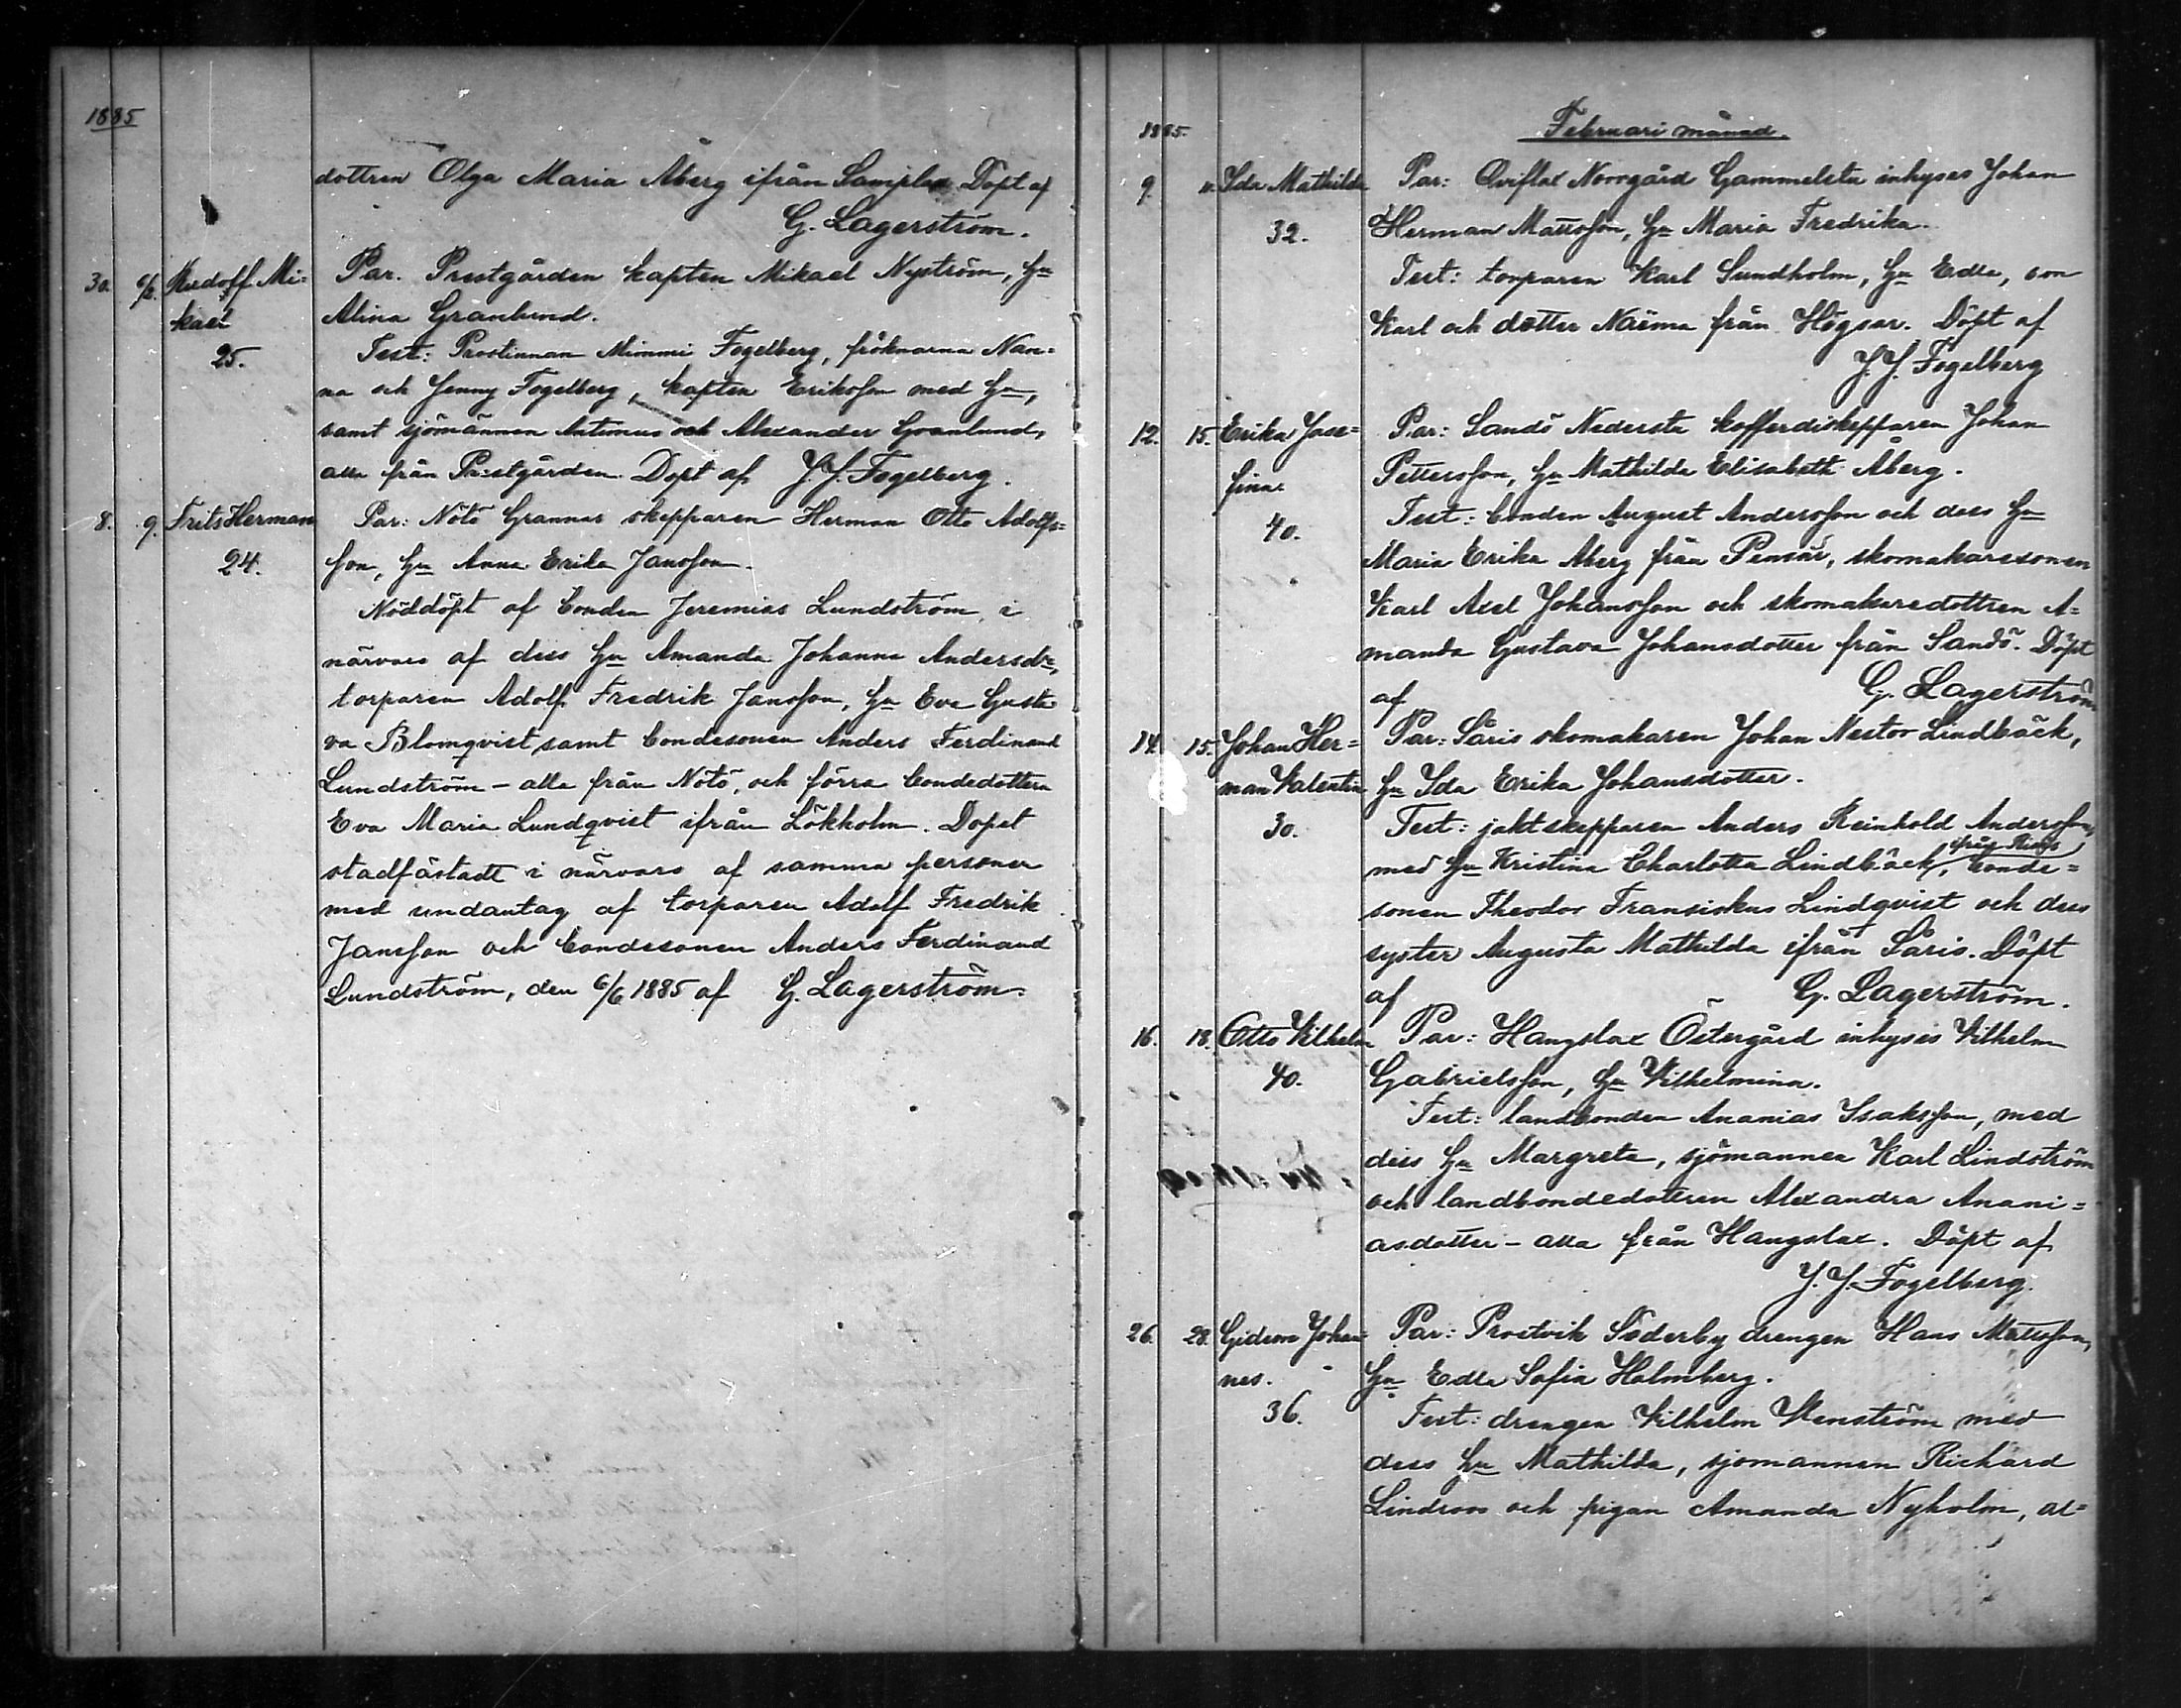 1885
dottren Olga Maria Åberg ifrån Lamplax Döpt af
G. Lagerström.
30. 6/2. Rudolf Mi= Par. Prostgården kapten Mikael Nyström, Hu
kael Alina Granlund.
25. Test: Prostinnan Mimmi Fogelberg, fröknarna Nan=
na och Jenny Fogelberg, kapten Eriksson med Hu,
samt sjömännen Antimus och Alexander Granlund,
alla från Prostgården Döpt af J. J. Fogelberg.
8. 9. Frits Herman Par: Nötö Grannas skepparen Herman Otto Adolfs=
24. son, Hu Anna Erika Jansson.
Nöddöpt af bonden Jeremias Lundström, i
närvaro af dess Hu Amanda Johanna Andersdr,
torparen Adolf Fredrik Jansson, Hu Eva Gusta
va Blomqvist, samt bondesonen Anders Ferdinand
Lundström – alla från Nötö, och förra bondedottern
Eva Maria Lundqvist ifrån Lökholm. Dopet
stadfästadt i närvaro af samma personer
med undantag af torparen Adolf Fredrik
Jansson och bondesonen Anders Ferdinand
Lundström, den 6/6 1885 af G. Lagerström.
1885. Februari månad.
9. 11. Ida Mathilda Par: Qviflax Norrgård Gammelstu inhyses Johan
32. Herman Mattsson, Hu Maria Fredrika.
Test: torparen Karl Sundholm, Hu Edla, son
Karl och dotter Naëma från Högsar. Döpt af
J. J. Fogelberg
12. 15. Erika Jose= Par: Sandö Nedersta kofferdiskepparen Johan
fina. Pettersson, Hu Mathilda Elisabeth Åberg.
40. Test: bonden August Andersson och dess Hu
Maria Erika Åberg från Pensar, skomakaresonen
Karl Axel Johansson och skomakaredottren A=
manda Gustava Johansdotter från Sandö. Döpt
af G. Lagerström
14. 15. Johan Her= Par: Såris skomakaren Johan Nestor Lindbäck,
man Valentin Hu Ida Erika Johansdotter.
30. Test: jaktskepparen Anders Reinhold Andersson,
med Hu Kristina Charlotta Lindbäck, från bonde=
sonen Theodor Fransiskus Lindqvist och dess
syster Augusta Mathilda ifrån Såris. Döpt
af G. Lagerström.
16. 18. Otto Vilhelm Par: Hangslax Östergård inhyses Vilhelm
40. Gabrielsson, Hu Vilhelmina.
Test: landbonden Ananias Isaksson, med
dess Hu Margreta, sjömannen Karl Lindström
och landbondedottren Alexandra Anani=
asdotter – alla från Hangslax. Döpt af
J. J. Fogelberg.
26. 28. Gideon Johan= Par: Prostvik Söderby drengen Hans Mattsson,
nes. Hu Edla Sofia Holmberg.
36. Test: drengen Vilhelm Stenström med
dess Hu Mathilda, sjömannen Richard
Lindroos och pigan Amanda Nyholm, al=